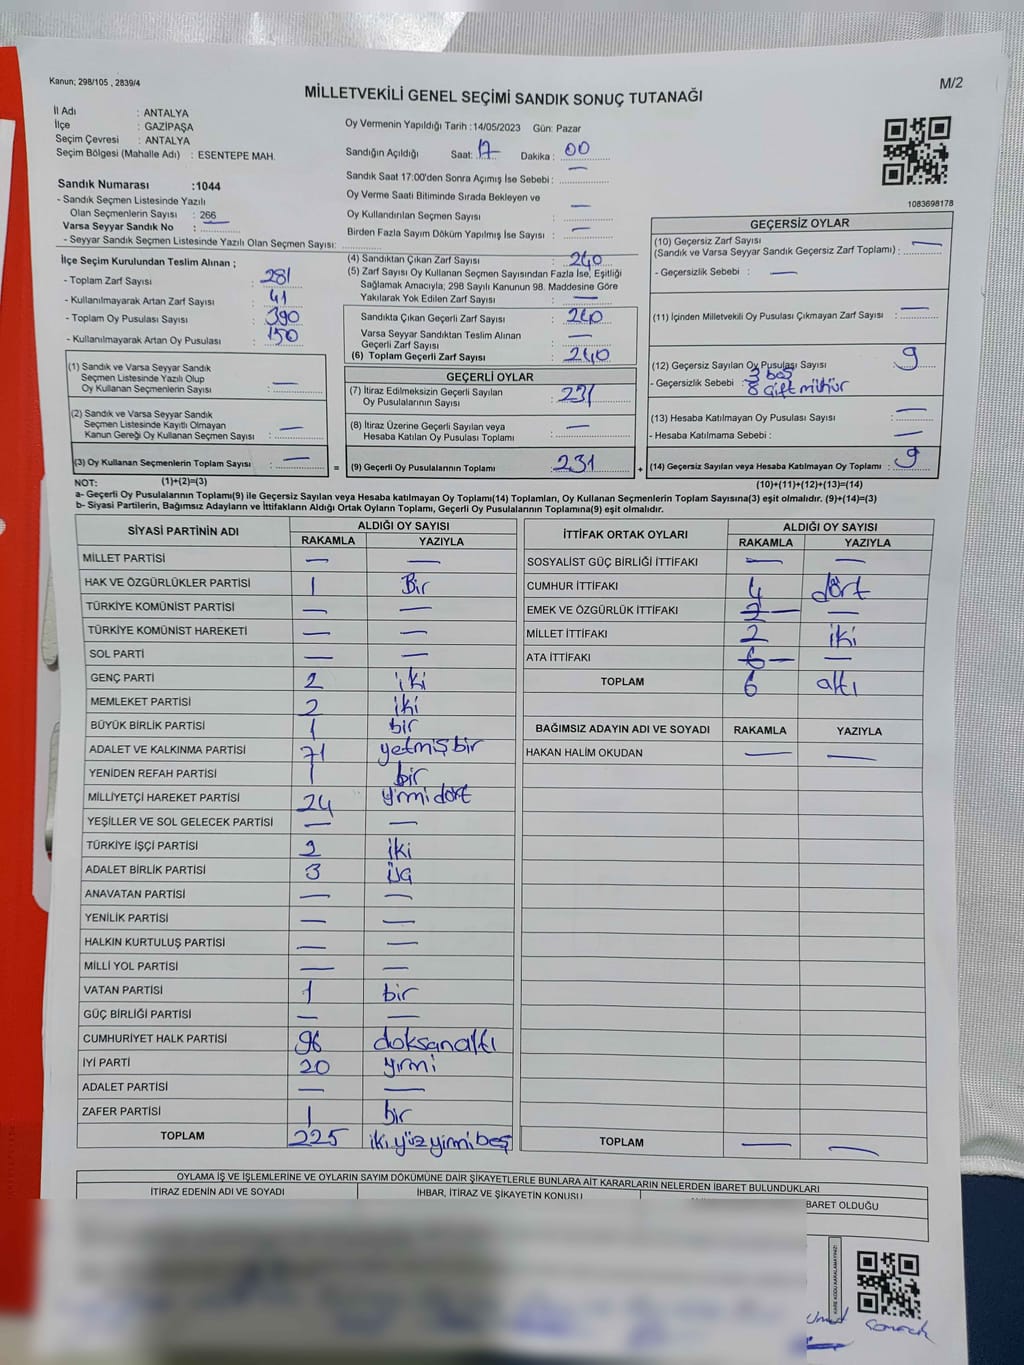 Kanun; 298/105 , 2839/4
M/2
MİLLETVEKİLİ GENEL SEÇİMİ SANDIK SONUÇ TUTANAĞI
İl Adı : ANTALYA
İlçe : GAZİPAŞA
Seçim Çevresi : ANTALYA
Seçim Bölgesi (Mahalle Adı) : ESENTEPE MAH.
Sandık Numarası :1044
- Sandık Seçmen Listesinde Yazılı
Olan Seçmenlerin Sayısı : 266
Varsa Seyyar Sandık No :
- Seyyar Sandık Seçmen Listesinde Yazılı Olan Seçmen Sayısı:
Oy Vermenin Yapıldığı Tarih :14/05/2023 Gün: Pazar
Sandığın Açıldığı Saat: 17 Dakika : 00
Sandık Saat 17:00'den Sonra Açımış İse Sebebi : —
Oy Verme Saati Bitiminde Sırada Bekleyen ve
Oy Kullandırılan Seçmen Sayısı : —
Birden Fazla Sayım Döküm Yapılmış İse Sayısı : —
1083698178
İlçe Seçim Kurulundan Teslim Alınan ;
- Toplam Zarf Sayısı : 281
- Kullanılmayarak Artan Zarf Sayısı : 41
- Toplam Oy Pusulası Sayısı : 390
- Kullanılmayarak Artan Oy Pusulası : 150
(1) Sandık ve Varsa Seyyar Sandık
Seçmen Listesinde Yazılı Olup
Oy Kullanan Seçmenlerin Sayısı : —
(2) Sandık ve Varsa Seyyar Sandık
Seçmen Listesinde Kayıtlı Olmayan
Kanun Gereği Oy Kullanan Seçmen Sayısı : —
(3) Oy Kullanan Seçmenlerin Toplam Sayısı : —
(4) Sandıktan Çıkan Zarf Sayısı : 240
(5) Zarf Sayısı Oy Kullanan Seçmen Sayısından Fazla İse, Eşitliği
Sağlamak Amacıyla; 298 Sayılı Kanunun 98. Maddesine Göre
Yakılarak Yok Edilen Zarf Sayısı : —
Sandıkta Çıkan Geçerli Zarf Sayısı : 240
Varsa Seyyar Sandıktan Teslim Alınan
Geçerli Zarf Sayısı : —
(6) Toplam Geçerli Zarf Sayısı : 240
GEÇERLİ OYLAR
(7) İtiraz Edilmeksizin Geçerli Sayılan
Oy Pusulalarının Sayısı : 231
(8) İtiraz Üzerine Geçerli Sayılan veya
Hesaba Katılan Oy Pusulası Toplamı : —
= (9) Geçerli Oy Pusulalarının Toplamı : 231
GEÇERSİZ OYLAR
(10) Geçersiz Zarf Sayısı
(Sandık ve Varsa Seyyar Sandık Geçersiz Zarf Toplamı) : —
- Geçersizlik Sebebi : —
(11) İçinden Milletvekili Oy Pusulası Çıkmayan Zarf Sayısı : —
(12) Geçersiz Sayılan Oy Pusulası Sayısı : 9
- Geçersizlik Sebebi : boş
8 çift mühür
(13) Hesaba Katılmayan Oy Pusulası Sayısı : —
- Hesaba Katılmama Sebebi : —
+ (14) Geçersiz Sayılan veya Hesaba Katılmayan Oy Toplamı : 9
NOT: (1)+(2)=(3)
(10)+(11)+(12)+(13)=(14)
a- Geçerli Oy Pusulalarının Toplamı(9) ile Geçersiz Sayılan veya Hesaba katılmayan Oy Toplamı(14) Toplamları, Oy Kullanan Seçmenlerin Toplam Sayısına(3) eşit olmalıdır. (9)+(14)=(3)
b- Siyasi Partilerin, Bağımsız Adayların ve İttifakların Aldığı Ortak Oyların Toplamı, Geçerli Oy Pusulalarının Toplamına(9) eşit olmalıdır.
SİYASİ PARTİNİN ADI ALDIĞI OY SAYISI
RAKAMLA YAZIYLA
MİLLET PARTİSİ — —
HAK VE ÖZGÜRLÜKLER PARTİSİ 1 Bir
TÜRKİYE KOMÜNİST PARTİSİ — —
TÜRKİYE KOMÜNİST HAREKETİ — —
SOL PARTİ — —
GENÇ PARTİ 2 iki
MEMLEKET PARTİSİ 2 iki
BÜYÜK BİRLİK PARTİSİ 1 bir
ADALET VE KALKINMA PARTİSİ 71 yetmişbir
YENİDEN REFAH PARTİSİ 1 bir
MİLLİYETÇİ HAREKET PARTİSİ 24 yirmi dört
YEŞİLLER VE SOL GELECEK PARTİSİ — —
TÜRKİYE İŞÇİ PARTİSİ 2 iki
ADALET BİRLİK PARTİSİ 3 üç
ANAVATAN PARTİSİ — —
YENİLİK PARTİSİ — —
HALKIN KURTULUŞ PARTİSİ — —
MİLLİ YOL PARTİSİ — —
VATAN PARTİSİ 1 bir
GÜÇ BİRLİĞİ PARTİSİ — —
CUMHURİYET HALK PARTİSİ 96 doksanaltı
İYİ PARTİ 20 yirmi
ADALET PARTİSİ — —
ZAFER PARTİSİ 1 bir
TOPLAM 225 iki yüz yirmi beş
İTTİFAK ORTAK OYLARI ALDIĞI OY SAYISI
RAKAMLA YAZIYLA
SOSYALİST GÜÇ BİRLİĞİ İTTİFAKI — —
CUMHUR İTTİFAKI 4 dört
EMEK VE ÖZGÜRLÜK İTTİFAKI 2 — —
MİLLET İTTİFAKI 2 iki
ATA İTTİFAKI 6 — —
TOPLAM 6 altı
BAĞIMSIZ ADAYIN ADI VE SOYADI RAKAMLA YAZIYLA
HAKAN HALİM OKUDAN — —
TOPLAM — —
OYLAMA İŞ VE İŞLEMLERİNE VE OYLARIN SAYIM DÖKÜMÜNE DAİR ŞİKAYETLERLE BUNLARA AİT KARARLARIN NELERDEN İBARET BULUNDUKLARI
İTİRAZ EDENİN ADI VE SOYADI İHBAR, İTİRAZ VE ŞİKAYETİN KONUSU BARET OLDUĞU